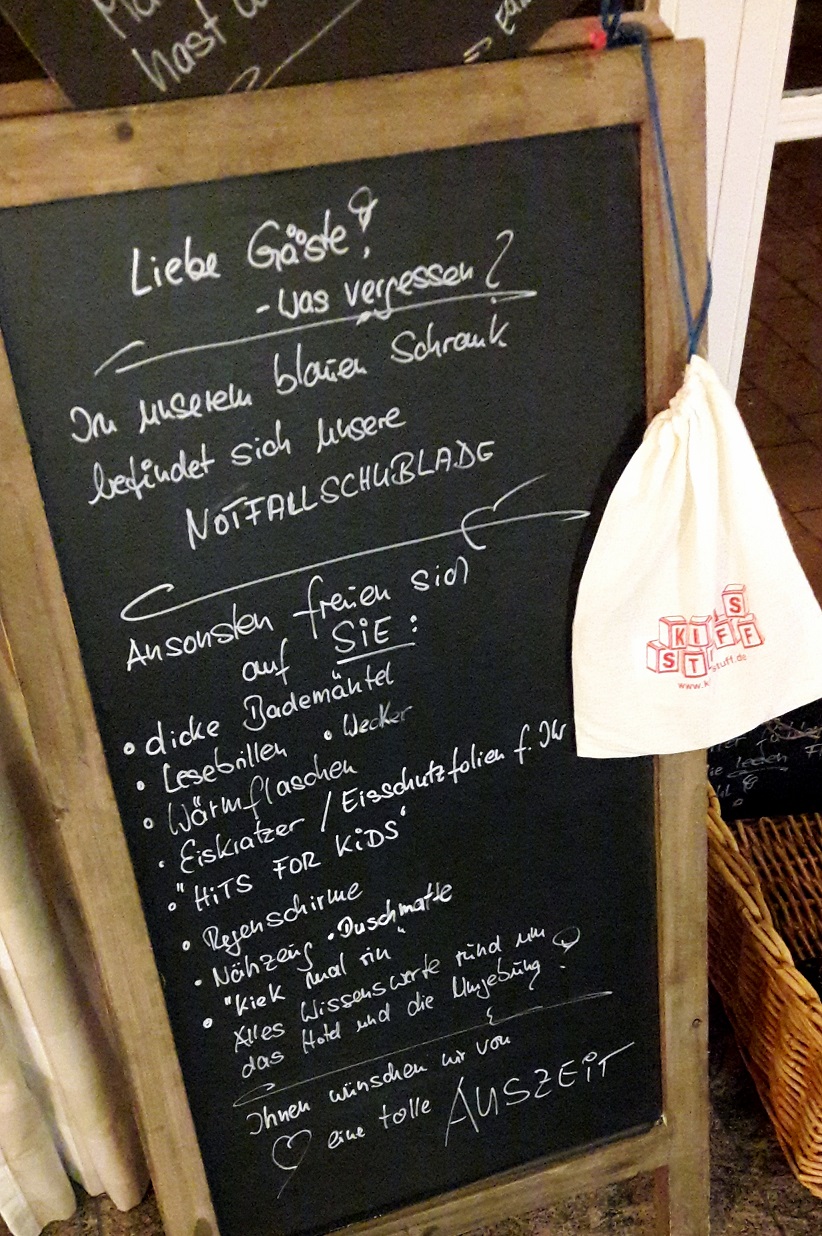 hast
Liebe Gäste!
- Was vergessen?
In unserem blauen Schrank
befindet sich unsere
NOTFALLSCHUBLADE
Ansonsten freuen sich
auf SiE:
• dicke Bademäntel
• Lesebrillen • Wecker
• Wärmflaschen
• Eiskratzer / Eisschutzfolien f. Ihr
• "HiTS FOR KiDS"
• Regenschirme
• Nähzeug • Duschmatte
• "Kiek mal rin"
Alles Wissenswerte rund um
das Hotel und die Umgebung!
Ihnen wünschen wir von
♡ eine tolle AUSZEiT
S
KIFF
ST
stuff.de
www.k